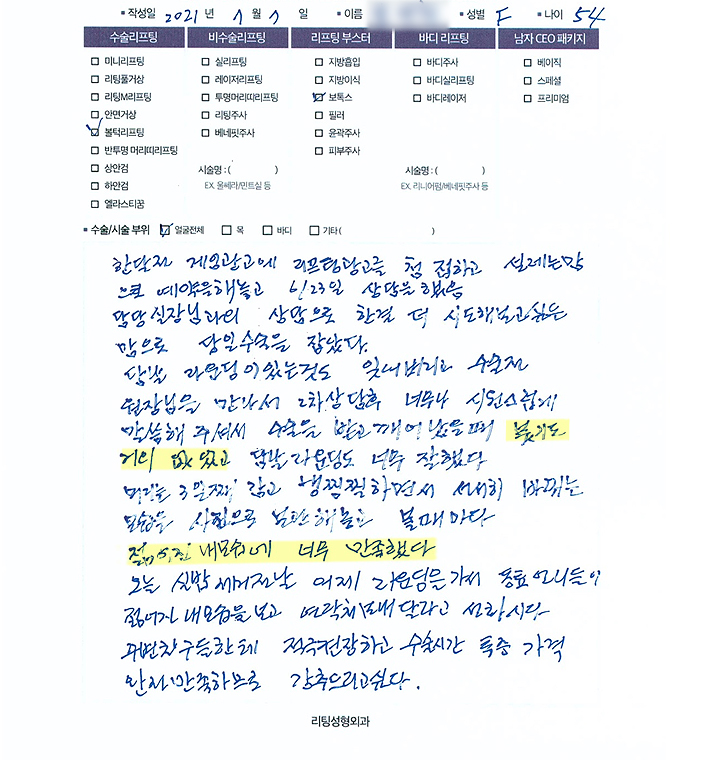 • 작성일 2021 년 7 월 7 일 • 이름 • 성별 F • 나이 54
수술리프팅 비수술리프팅 리프팅 부스터 바디 리프팅 남자 CEO 패키지
미니리프팅 실리프팅 지방흡입 바디주사 베이직
리팅풀거상 레이저리프팅 지방이식 바디실리프팅 스페셜
리팅M리프팅 투명머리띠리프팅 보톡스 바디레이저 프리미엄
안면거상 리팅주사 필러
볼턱리프팅 베네핏주사 윤곽주사
반투명 머리띠리프팅 피부주사
상안검 시술명 : ( ) 시술명 : ( )
하안검 EX. 울쎄라/민트실 등 EX. 리니어펌/베네핏주사 등
엘라스티꿈
• 수술/시술 부위 얼굴전체 목 바디 기타 ( )
한달전 게임광고에 리프팅광고를 첨 접하고 설레는맘
으로 예약을해놓고 6/23일 상담을 했음
담당실장님과의 상담으로 한결 더 시도해보고싶은
맘으로 당일수술을 잡았다.
담날 라운딩이있는것도 잊어버리고 수술전
원장님을 만나서 2차상담후 너무나 시원스럽게
말씀해 주셔서 수술을 받고 깨어났을때 붓기도
거의 없었고 담날라운딩도 너무 잘했다
머리는 3일째 감고 냉찜질하면서 서서히 바뀌는
모습을 사진으로 남편해놓고 볼때마다
젊어진 내모습에 너무 만족했다
오늘 실밥제거전날 어제 라운딩을가서 동료언니들이
젊어진 내모습을보고 연락처보내달라고 성화시다
주변친구들한테 적극권장하고 수술시간 통증 가격
완전만족하므로 강추드리고싶다.
리팅성형외과